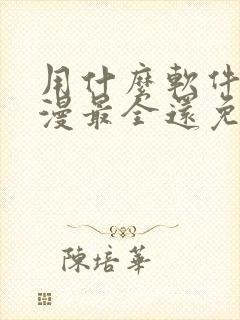 用什麼軟件
漫最全還免
陳培華